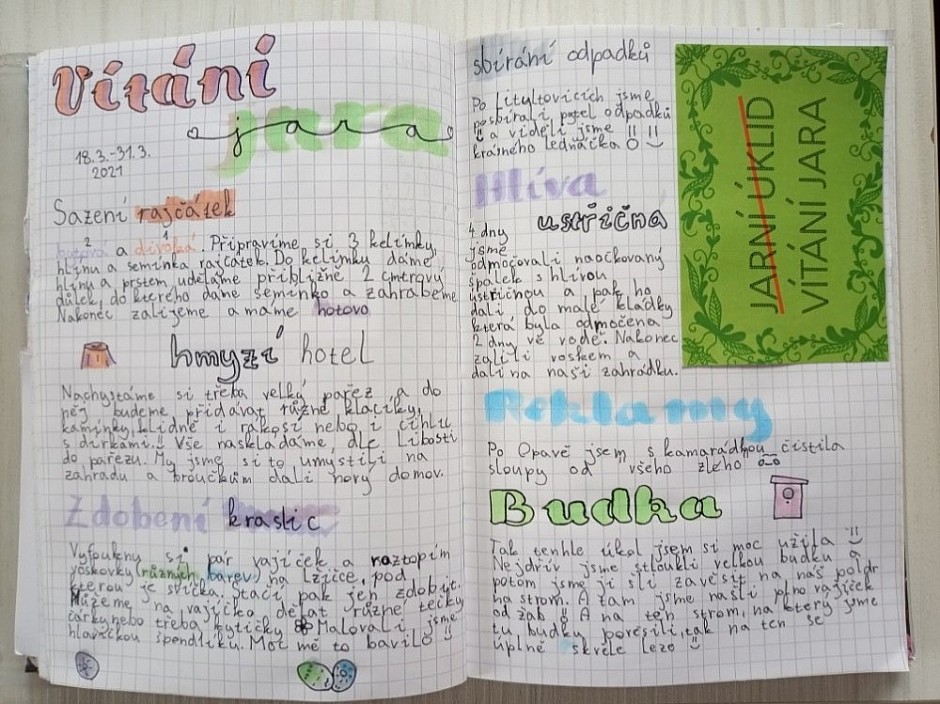 Vítání
jara
18.3.-31.3.
2021
Sazení rajčátek
2 1
hotová a divoká. Připravíme si 3 kelímky,
hlínu a semínka rajčátek. Do kelímku dáme
hlínu a prstem uděláme přibližně 2 cmetrový
důlek, do kterého dáme semínko a zahrabeme.
Nakonec zalijeme a máme hotovo
hmyzí hotel
Nachystáme si třeba velký pařez a do
něj budeme přidávat různé klacíky,
kamínky, klidně i rákosí nebo i cihlu
s dírkami.!! Vše naskládáme dle libosti
do pařezu. My jsme si to umýstili na
zahradu a broučkům dali nový domov.
Zdobení kraslic
Vyfoukny si pár vajíček a roztopím
voskovky (různých barev) na lžíce, pod
kterou je svíčka. Stačí pak jen zdobit.
Můžeme na vajíčka dělat různé tečky
čárky nebo třeba kytičky Malovali jsme
hlavičkou špendlíku. Moc mě to bavilo
sbírání odpadků
Po Lítultovicích jsme
posbírali pytel odpadků
a viděli jsme
krásného ledňáčka
Hlíva
ustřičná
4 dny
jsme
odmočovali naočkovaný
špalek s hlívou
ústřičnou a pak ho
dali do malé kládky
která byla odmočena
2 dny ve vodě. Nakonec
zalili voskem a
dali na naši zahrádku.
JARNÍ ÚKLID
VÍTÁNÍ JARA
Reklamy
Po Opavě jsem s kamarádkou čistila
sloupy od "všeho zlého
Budka
Tak tenhle úkol jsem si moc užila
Nejdřív jsme stloukli velkou budku a
potom jsme ji šli zavěsit na náš poldr
na strom. A tam jsme našli plno vajíček
od žab A na ten strom, na který jsme
tu budku pověsili, tak na ten se
úplně skvěle leze